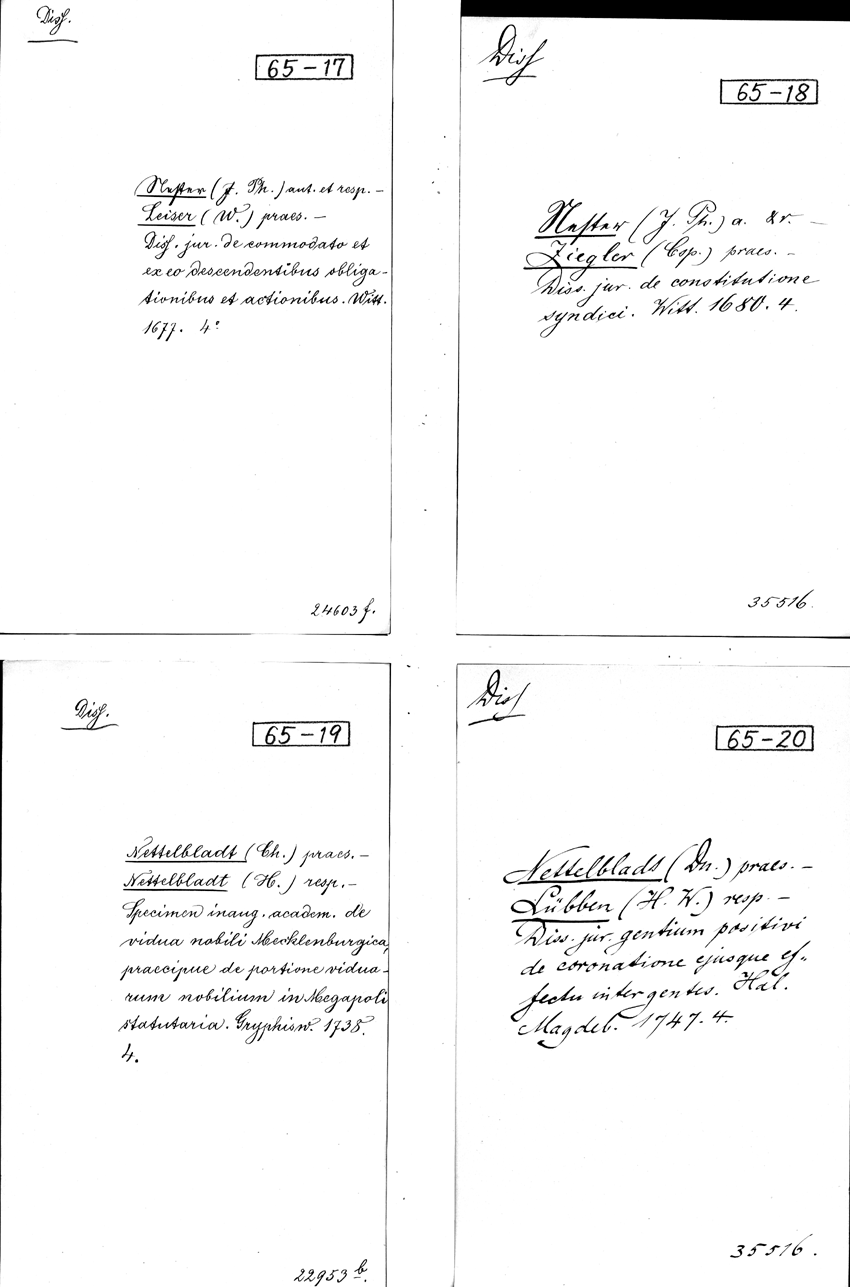 Diss.
65-17
Nester (J. Th.) aut. et resp. —
Leiser (W.) praes. —
Diss. jur. de commodato et
ex eo descendentibus obliga-
tionibus et actionibus. Witt.
1677. 4°
24603 f.
Diss
65-18
Nester (J. Th.) a. & r. —
Ziegler (Csp.) praes. —
Diss. jur. de constitutione
syndici. Witt. 1680. 4.
35516.
Diss.
65-19
Nettelbladt (Ch.) praes. —
Nettelbladt (H.) resp. —
Specimen inaug. academ. de
vidua nobili Mecklenburgica,
praecipue de portione vidua-
rum nobilium in Megapoli
statutaria. Gryphisw. 1738.
4.
22953 b.
Diss
65-20
Nettelblads (Dn.) praes. —
Lübben (H. W.) resp. —
Diss. jur. gentium positivi
de coronatione ejusque ef-
fectu inter gentes. Hal.
Magdeb. 1747. 4.
35516.